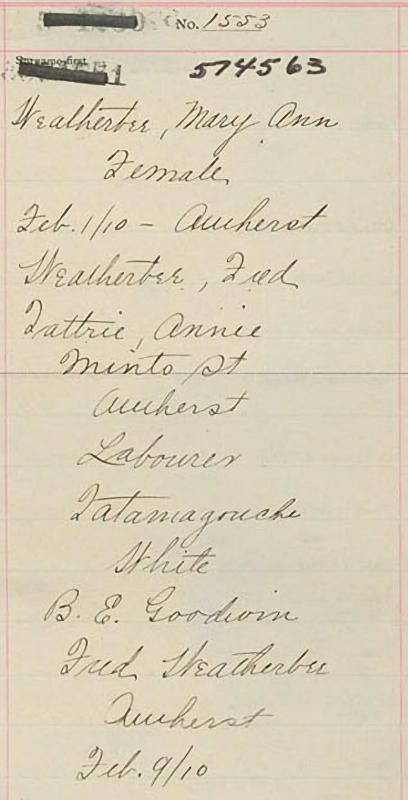 No. 1553
Surname first
574563
Weatherbee, Mary Ann
Female
Feb. 1/10 - Amherst
Weatherbee, Fred
Tattrie, Annie
Minto St
Amherst
Labourer
Tatamagouche
White
B. E. Goodwin
Fred Weatherbee
Amherst
Feb. 9/10